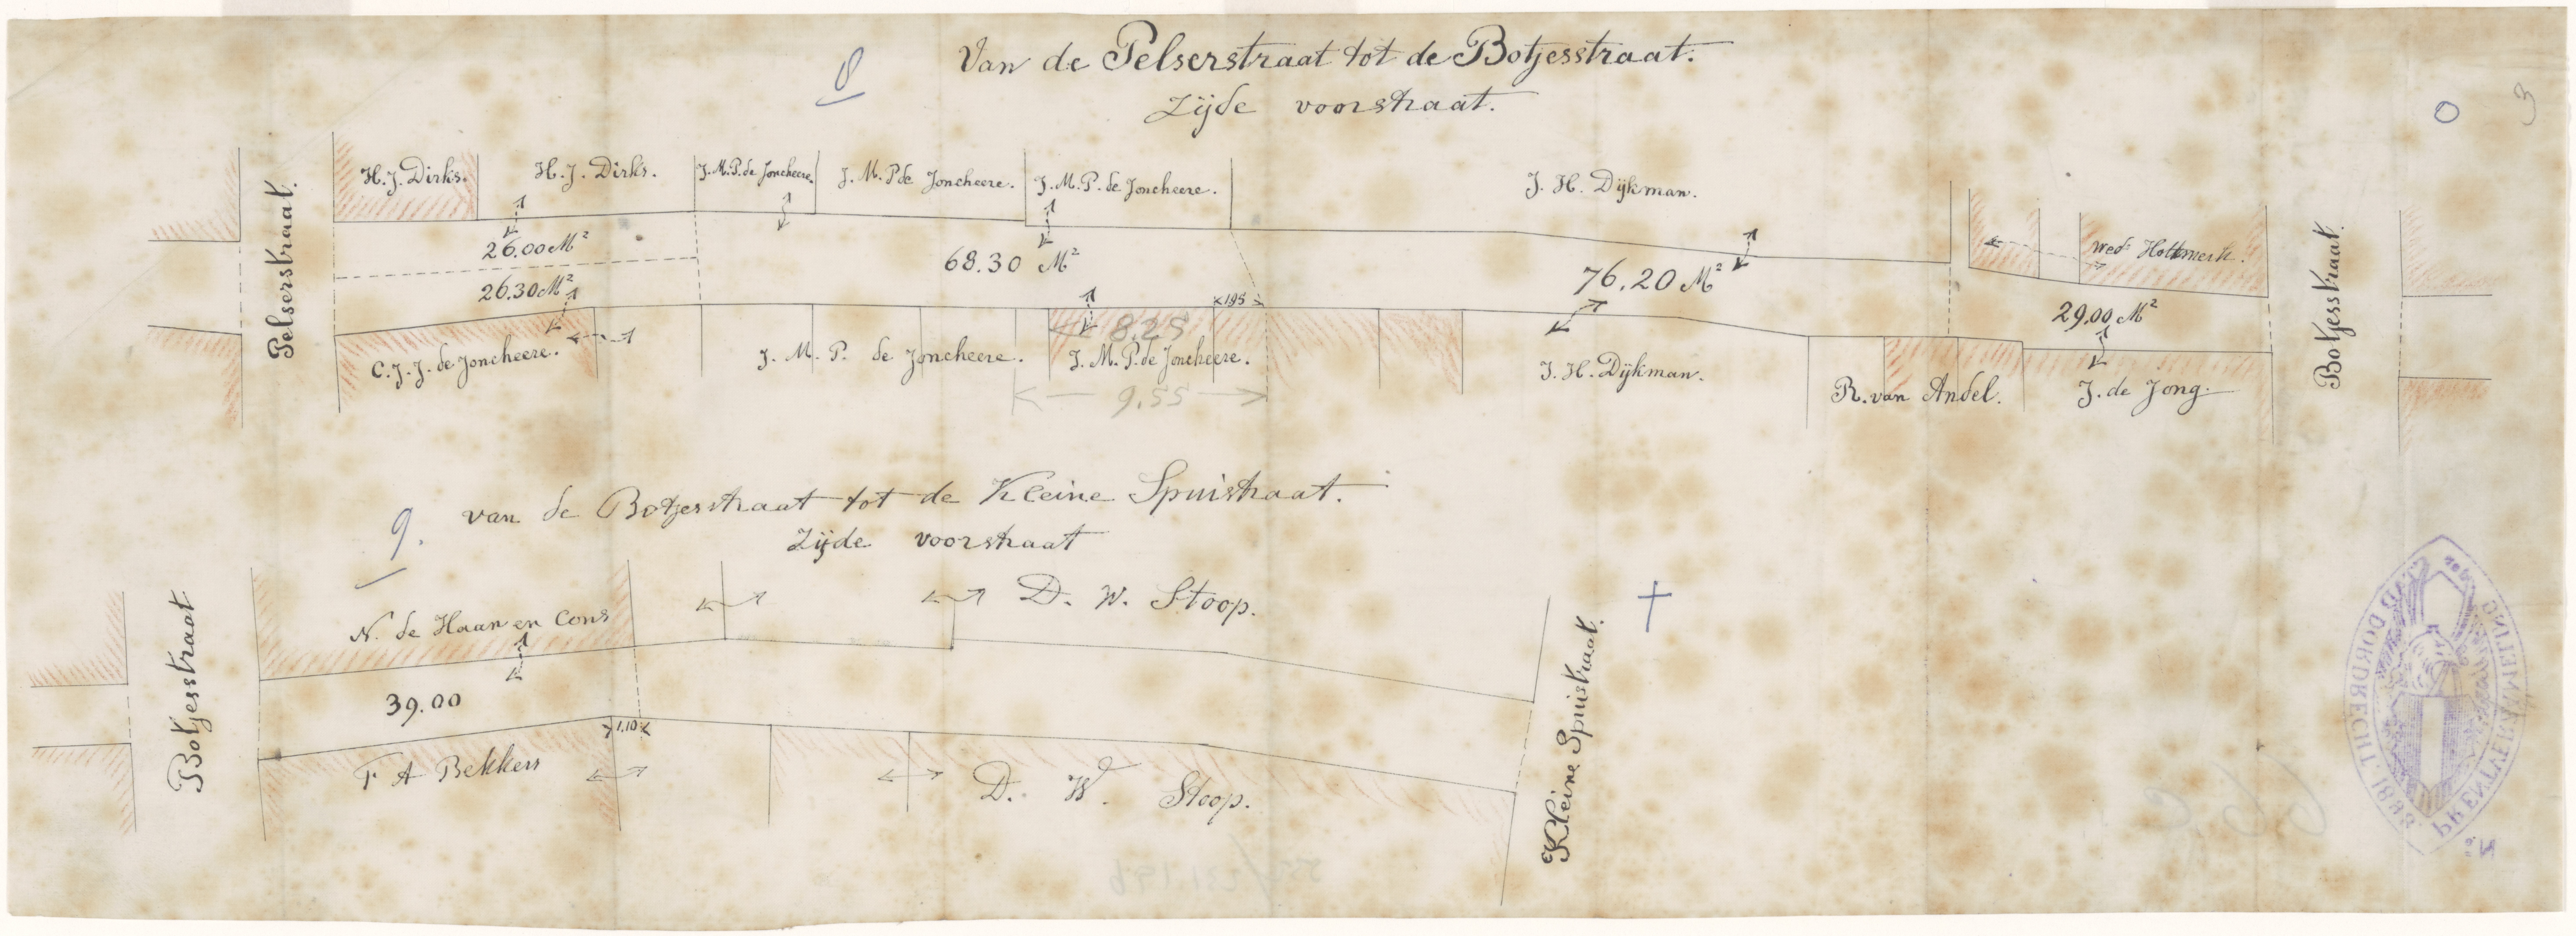 8
Van de Pelserstraat tot de Botjesstraat.
Zijde voorstraat.
0
3
Pelserstraat.
H. J. Dirks.
H. J. Dirks.
J. M. P. de Joncheere.
J. M. P. de Joncheere.
J. M. P. de Joncheere.
J. H. Dijkman.
wed.
Botjesstraat.
26.00 M²
26.30 M²
68.30 M²
76.20 M²
29.00 M²
1.95
8.25
C. J. J. de Joncheere.
J. M. P. de Joncheere.
J. M. P. de Joncheere.
9.55
J. H. Dijkman.
R. van Andel.
J. de Jong.
9.
van de Botjesstraat tot de Kleine Spuistraat.
Zijde voorstraat
Botjesstraat
N. de Haan en Cons
D. W. Stoop.
Kleine Spuistraat.
39.00
1.10
F A Bekkers
D. W. Stoop.
PRENTVERZAMELING
DORDRECHT. 1883.
No.